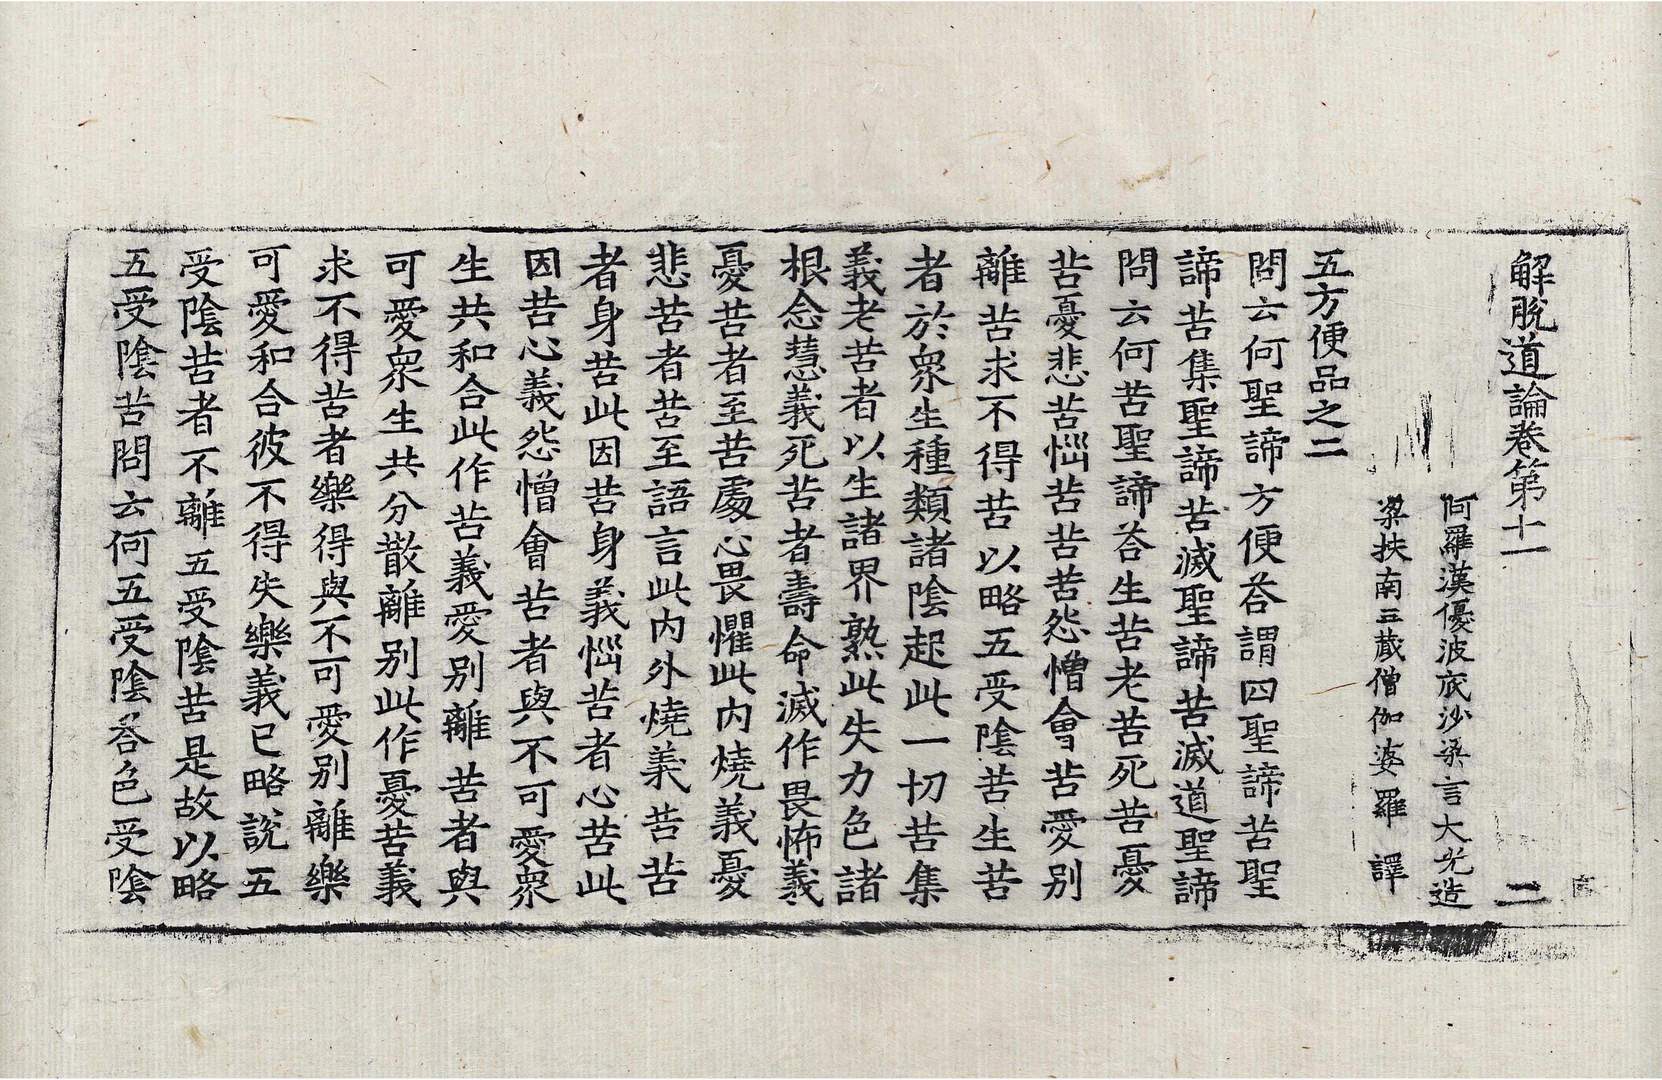 解脫道論卷第十一 二
阿羅漢優波底沙梁言大光造
梁扶南三藏僧伽婆羅 譯
五方便品之二
問云何聖諦方便荅謂四聖諦苦聖
諦苦集聖諦苦滅聖諦苦滅道聖諦
問云何苦聖諦荅生苦老苦死苦憂
苦憂悲苦惱苦苦苦怨憎會苦愛別
離苦求不得苦以略五受陰苦生苦
者於衆生種類諸陰起此一切苦集
義老苦者以生諸界熟此失力色諸
根念慧義死苦者壽命滅作畏怖義
憂苦者至苦處心畏懼此內燒義憂
悲苦者苦至語言此內外燒義苦苦
者身苦此因苦身義惱苦者心苦此
因苦心義怨憎會苦者與不可愛衆
生共和合此作苦義愛別離苦者與
可愛衆生共分散離別此作憂苦義
求不得苦者樂得與不可愛別離樂
可愛和合彼不得失樂義已略說五
受陰苦者不離五受陰苦是故以略
五受陰苦問云何五受陰荅色受陰